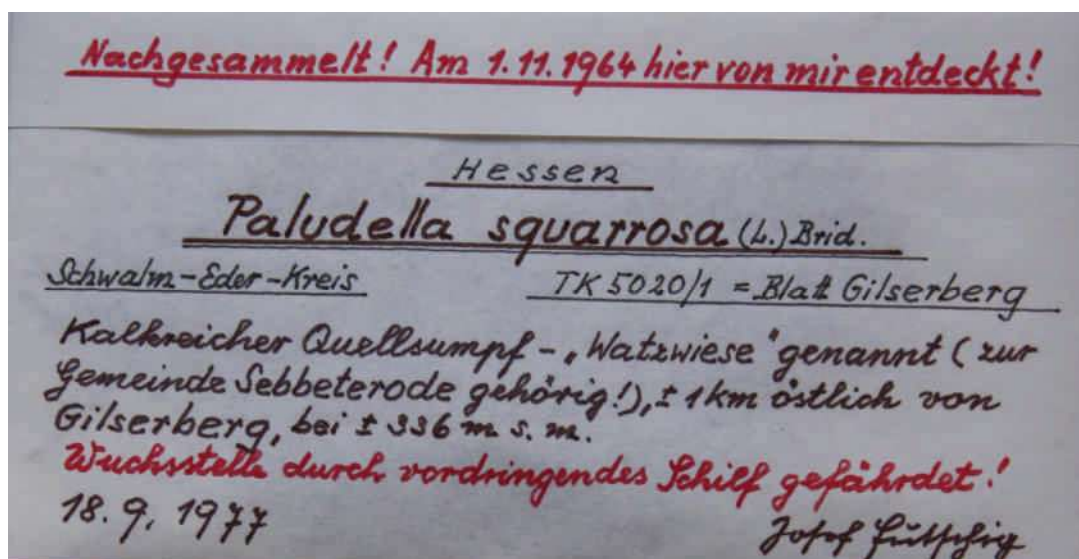 Nachgesammelt! Am 1.11.1964 hier von mir entdeckt!
Hessen
Paludella squarrosa (L.) Brid.
Schwalm-Eder-Kreis TK 5020/1 = Blatt Gilserberg
Kalkreicher Quellsumpf - „Watzwiese" genannt (zur
Gemeinde Sebbeterode gehörig!), ± 1km östlich von
Gilserberg, bei ± 336 m s. m.
Wuchsstelle durch vordringendes Schilf gefährdet!
18. 9. 1977 Josef Futschig